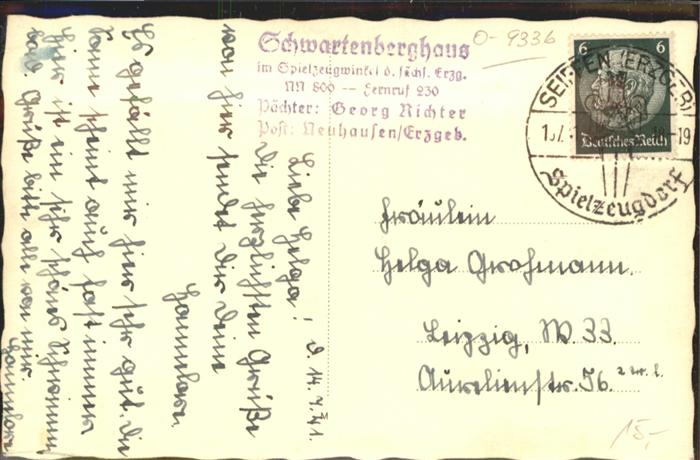 Schwartenberghaus
im Spielzeugwinkel d. sächs. Erzg.
NN 800 — Fernruf 230
Pächter: Georg Richter
Post: Neuhausen/Erzgeb.
O-9336
6 6
Deutsches Reich
SEIFFEN (ERZGEB)
Spielzeugdorf
d. 14.7.41
Liebe Helga!
Die herzlichsten Grüße
von hier sendet Dir Deine
Hannelore.
Es gefällt mir hier sehr gut. Die
Sonne scheint auch fast immer
Hier ist ein sehr schönes Schwimm-
bad. Grüße bitte alle von mir.
Hannelore
Fräulein
Helga Grohmann.
Leipzig, W. 33.
Aurelienstr. 76. 2 Tr. l.
15,-